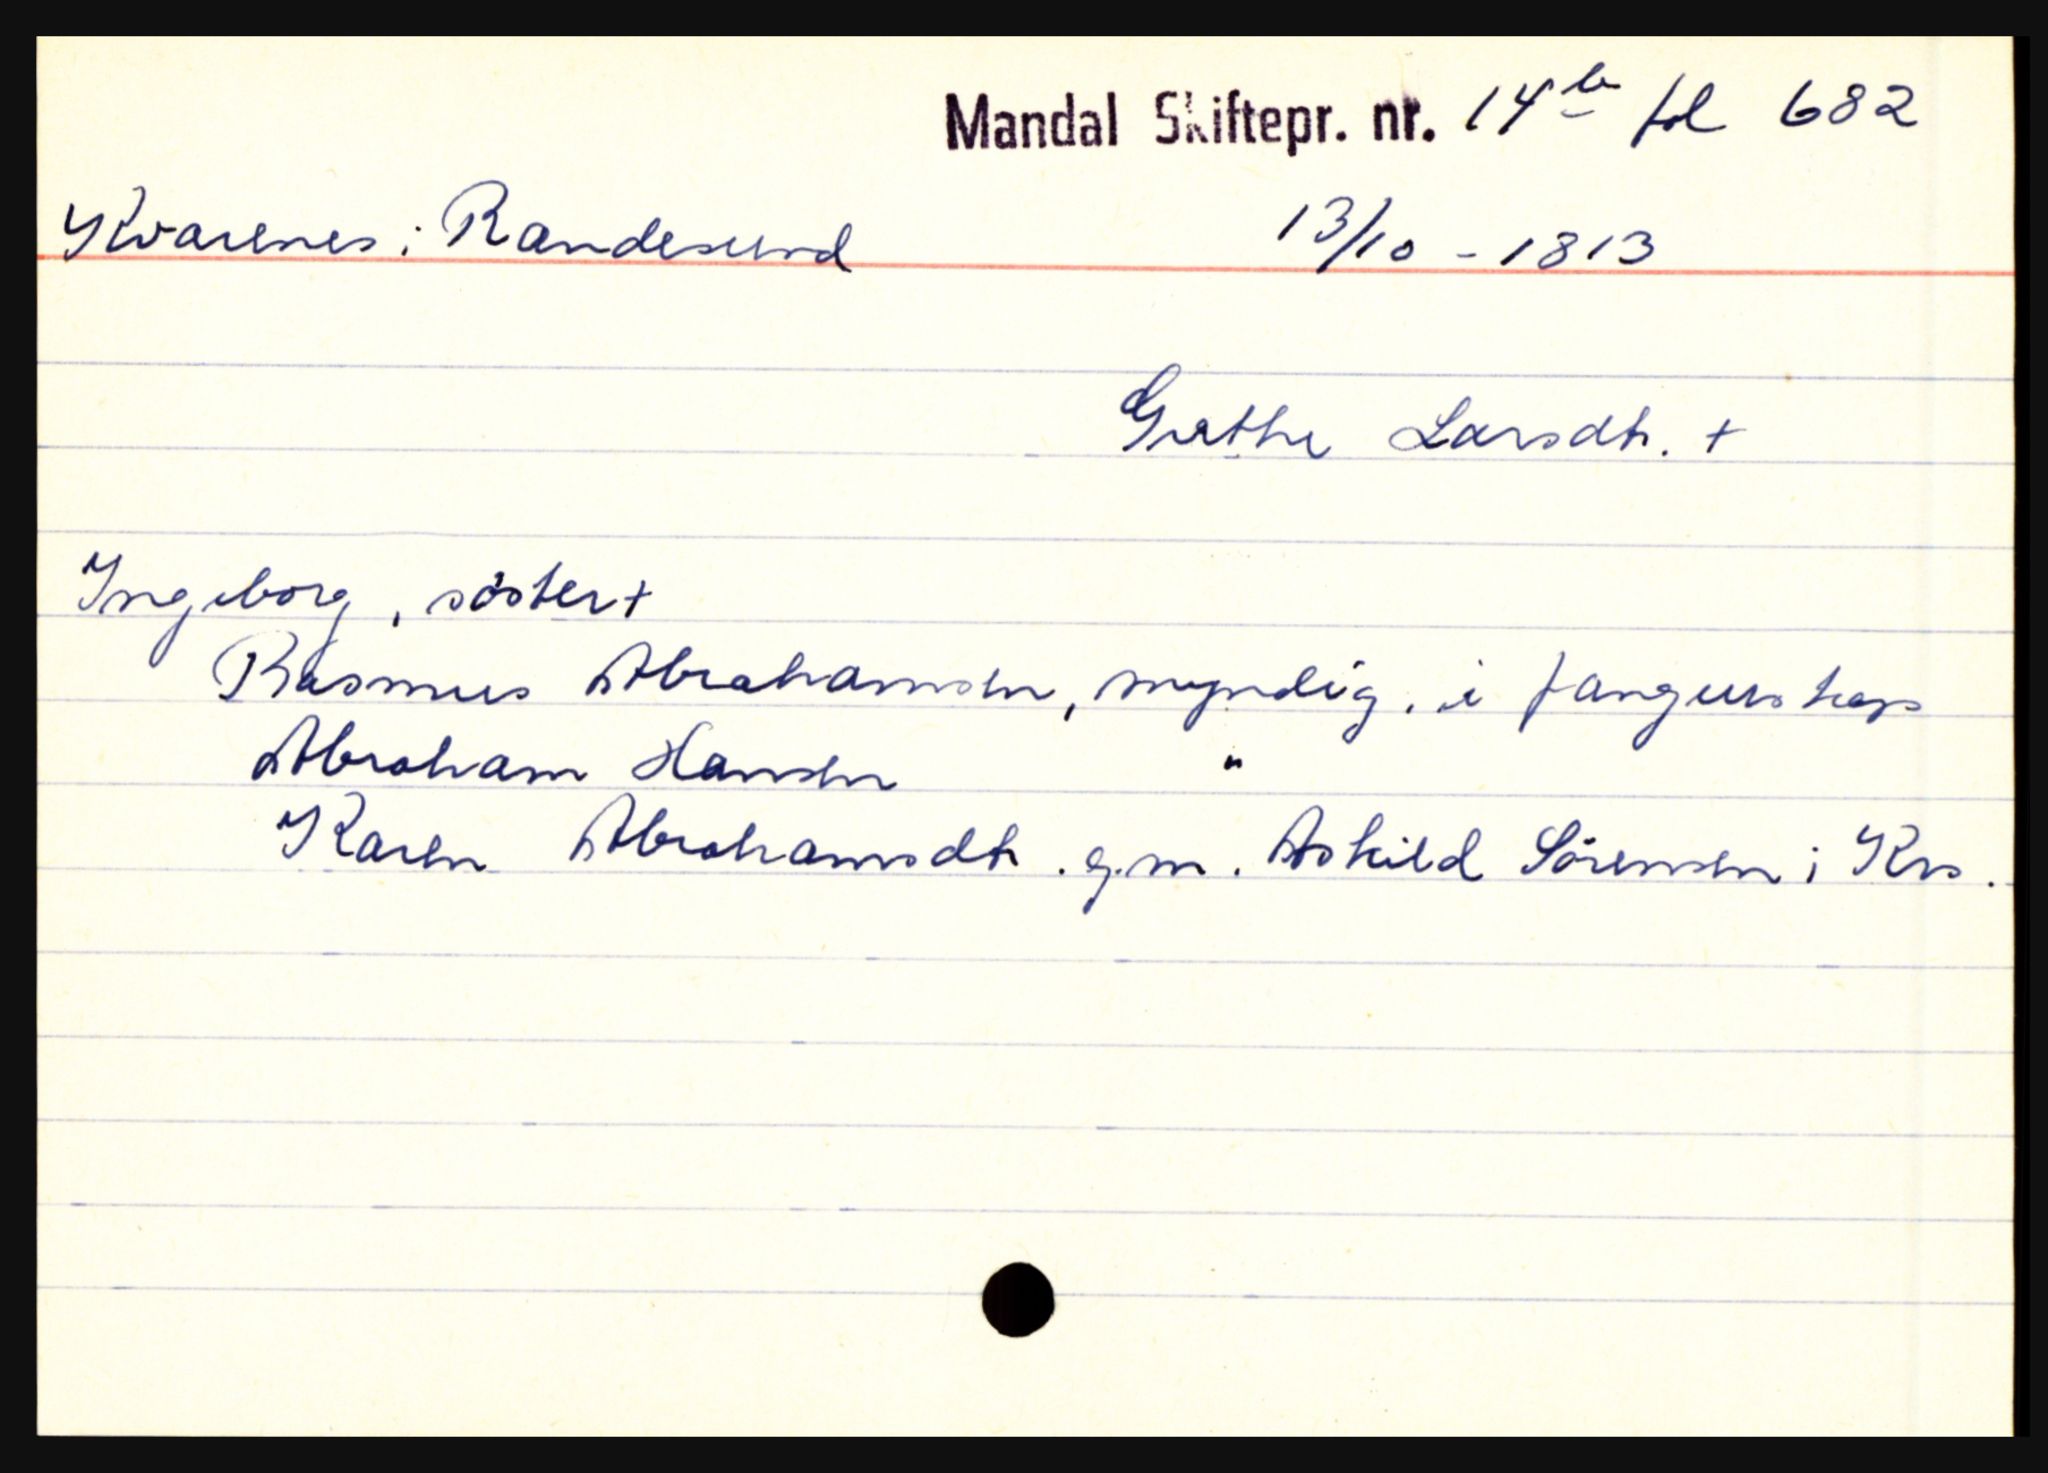 Mandal Skiftepr. nr. 14b fol 682
Kvarenes i Randesund 13/10 - 1813
Grethe Larsdtr. +
Ingeborg, söster +
Rasmus Abrahamsen, myndig, i fangenskap
Abraham Hansen "
Karen Abrahamsdtr. g.m. Askild Sörensen i Krs.